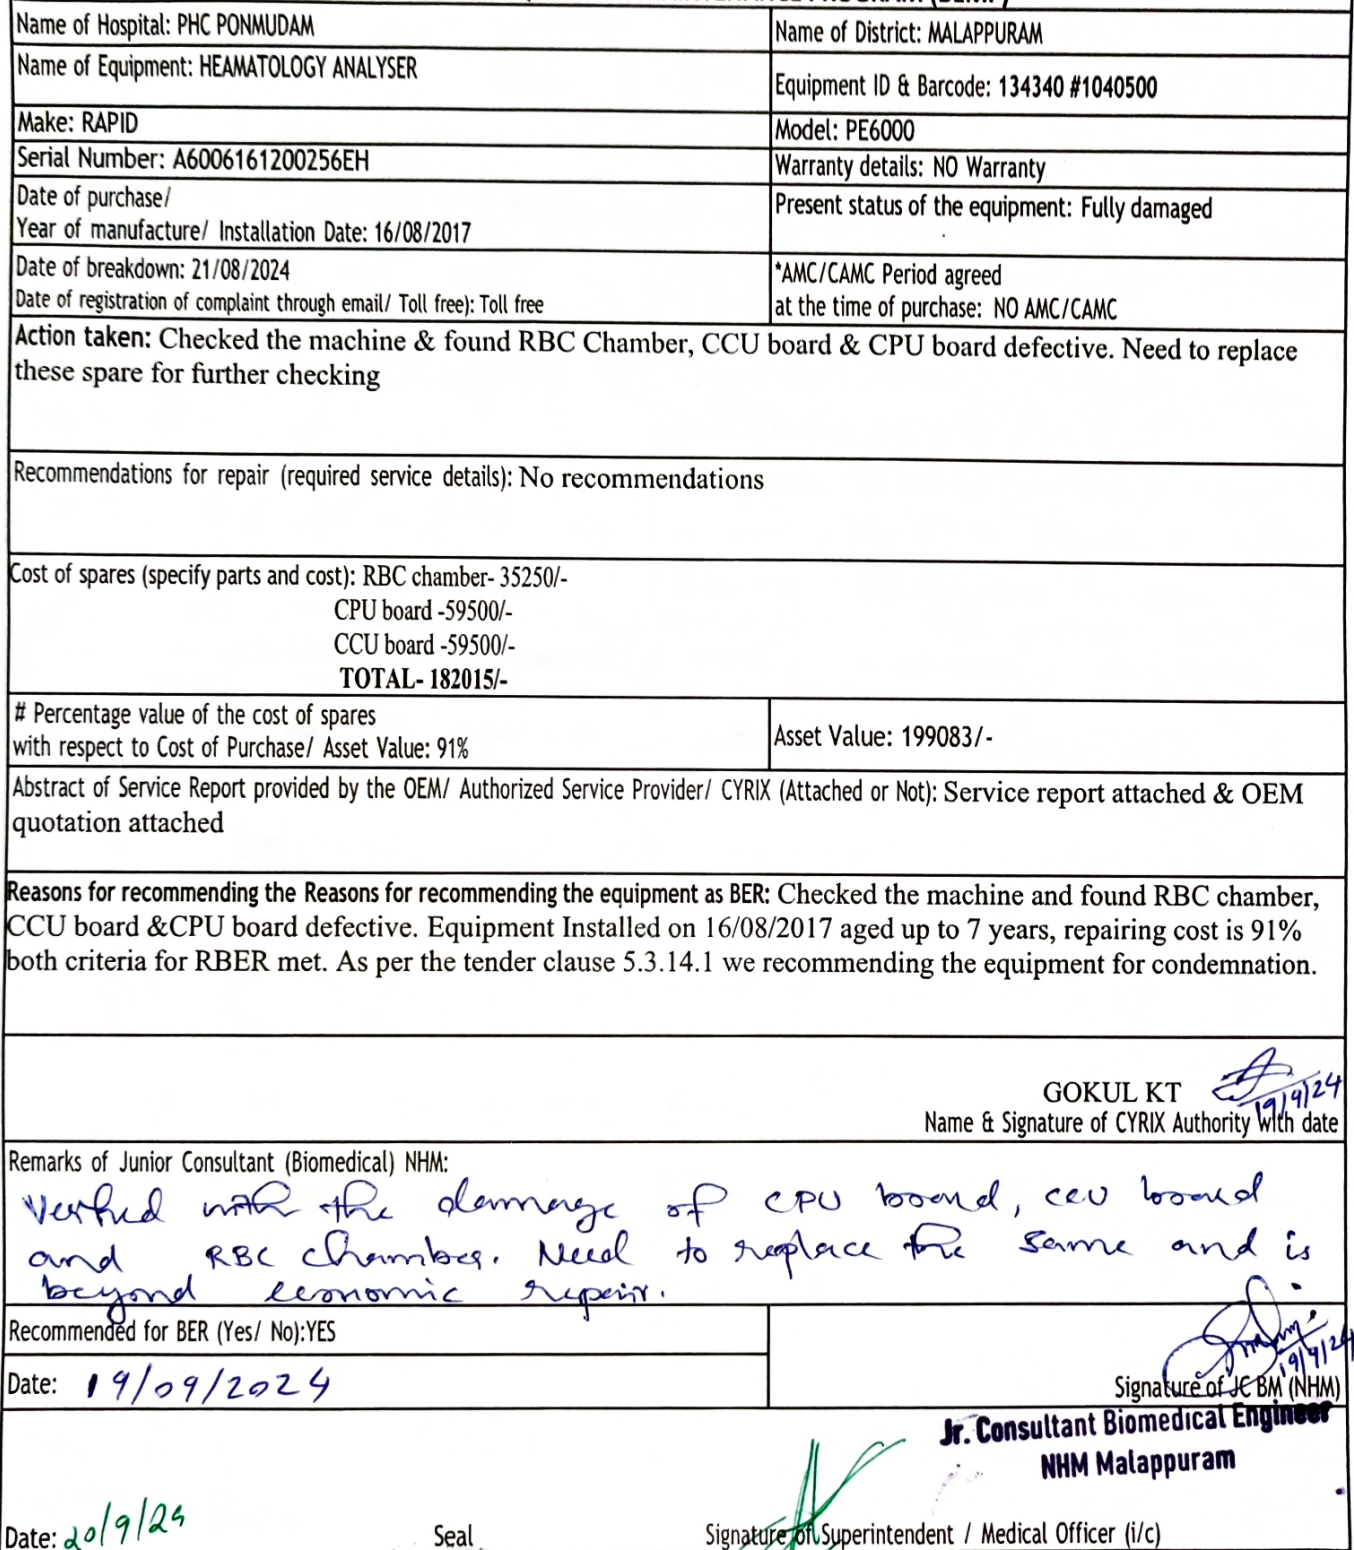 Name of Hospital: PHC PONMUDAM
Name of District: MALAPPURAM
Name of Equipment: HEAMATOLOGY ANALYSER
Equipment ID & Barcode: 134340 #1040500
Make: RAPID
Model: PE6000
Serial Number: A6006161200256EH
Warranty details: NO Warranty
Date of purchase/
Year of manufacture/ Installation Date: 16/08/2017
Present status of the equipment: Fully damaged
Date of breakdown: 21/08/2024
Date of registration of complaint through email/ Toll free): Toll free
*AMC/CAMC Period agreed
at the time of purchase: NO AMC/CAMC
Action taken: Checked the machine & found RBC Chamber, CCU board & CPU board defective. Need to replace
these spare for further checking
Recommendations for repair (required service details): No recommendations
Cost of spares (specify parts and cost): RBC chamber- 35250/-
CPU board -59500/-
CCU board -59500/-
TOTAL- 182015/-
# Percentage value of the cost of spares
with respect to Cost of Purchase/ Asset Value: 91%
Asset Value: 199083/-
Abstract of Service Report provided by the OEM/ Authorized Service Provider/ CYRIX (Attached or Not): Service report attached & OEM
quotation attached
Reasons for recommending the Reasons for recommending the equipment as BER: Checked the machine and found RBC chamber,
CCU board &CPU board defective. Equipment Installed on 16/08/2017 aged up to 7 years, repairing cost is 91%
both criteria for RBER met. As per the tender clause 5.3.14.1 we recommending the equipment for condemnation.
GOKUL KT 19/9/24
Name & Signature of CYRIX Authority with date
Remarks of Junior Consultant (Biomedical) NHM:
Verified with the damage of CPU board, CCU board
and RBC chamber. Need to replace the same and is
beyond economic repair.
Recommended for BER (Yes/ No):YES
Date: 19/09/2024
19/9/24
Signature of JC BM (NHM)
Jr. Consultant Biomedical Engineer
NHM Malappuram
Date: 20/9/24
Seal
Signature of Superintendent / Medical Officer (i/c)